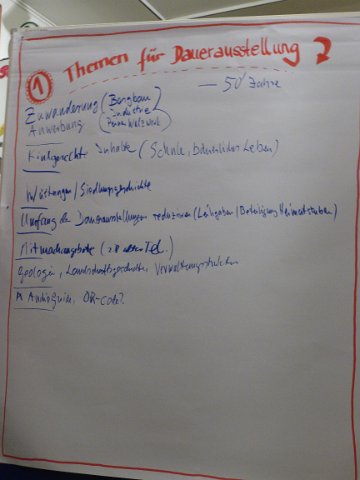 ① Themen für Dauerausstellung
Zuwanderung (Bergbau — 50' Jahre
Anwerbung Industrie
Kindgerechte Inhalte (Schule, bäuerliches Leben)
Wüstungen / Siedlungsgeschichte
Umfang der Dauerausstellungen reduzieren (Leihgaben / Beteiligung Heimatstuben)
Mitmachangebote (z.B. altes Tel.)
Geologie, Landschaftsgeschichte, Verwaltungsstrukturen
Audioguide, QR-Code?